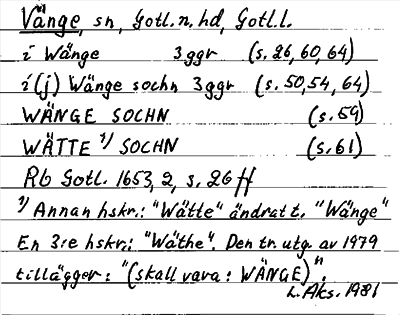 Vänge, sn, Gotl. n. hd, Gotl. l.
i Wänge 3 ggr (s. 26, 60, 64)
i (j) Wänge sochn 3 ggr (s. 50, 54, 64)
WÄNGE SOCHN (s. 59)
WÄTTE 1) SOCHN (s. 61)
Rb Gotl. 1653, 2, s. 26 ff
1) Annan hskr.: "Wätte" ändrat t. "Wänge"
En 3:e hskr.: "Wäthe". Den tr. utg. av 1979
tillägger: "(skall vara: WÄNGE)".
L. Aks. 1981